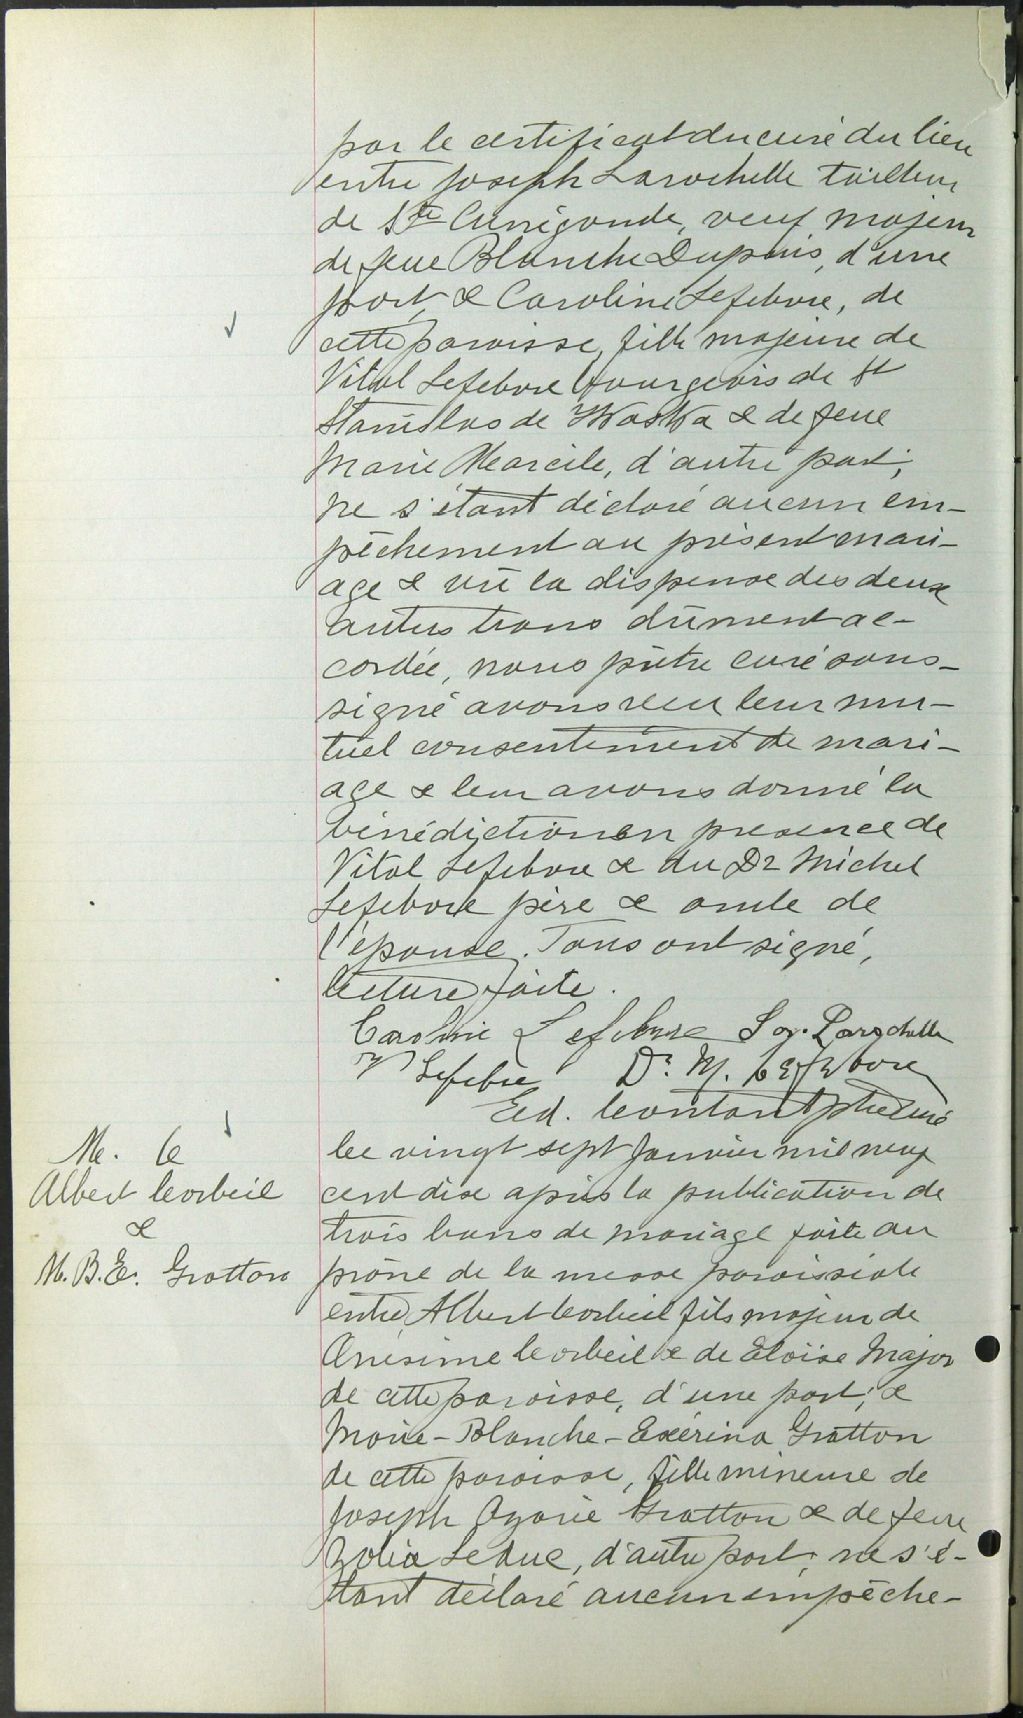 par le certificat du curé du lieu
entre Joseph Larochelle tailleur
de Ste Cunégonde, veuf majeur
de feue Blanche Dupuis, d'une
part, & Caroline Lefebvre, de
cette paroisse, fille majeure de
Vital Lefebvre bourgeois de St
Stanislas de Kostka & de feue
Marie Marcile, d'autre part;
ne s'étant déclaré aucun em-
pêchement au présent mari-
age & vu la dispense des deux
autres bans dûment ac-
cordée, nous prêtre curé sous-
signé avons reçu leur mu-
tuel consentement de mari-
age & leur avons donné la
bénédiction en présence de
Vital Lefebvre & du Dr Michel
Lefebvre père & oncle de
l'épouse. Tous ont signé,
lecture faite.
Caroline Lefebvre Jos. Larochelle
V Lefebvre Dr. M. Lefebvre
Ed. Contant ptre curé
M. 6
Albert Corbeil
&
M. B. E. Gratton
Le vingt sept janvier mil neuf
cent dix après la publication de
trois bans de mariage faite au
prône de la messe paroissiale
entre Albert Corbeil fils majeur de
Onésime Corbeil & de Eloïse Major
de cette paroisse, d'une part; &
Marie-Blanche-Exérina Gratton
de cette paroisse, fille mineure de
Joseph Azarie Gratton & de feue
Zolia Leduc, d'autre part; ne s'é-
tant déclaré aucun empêche-